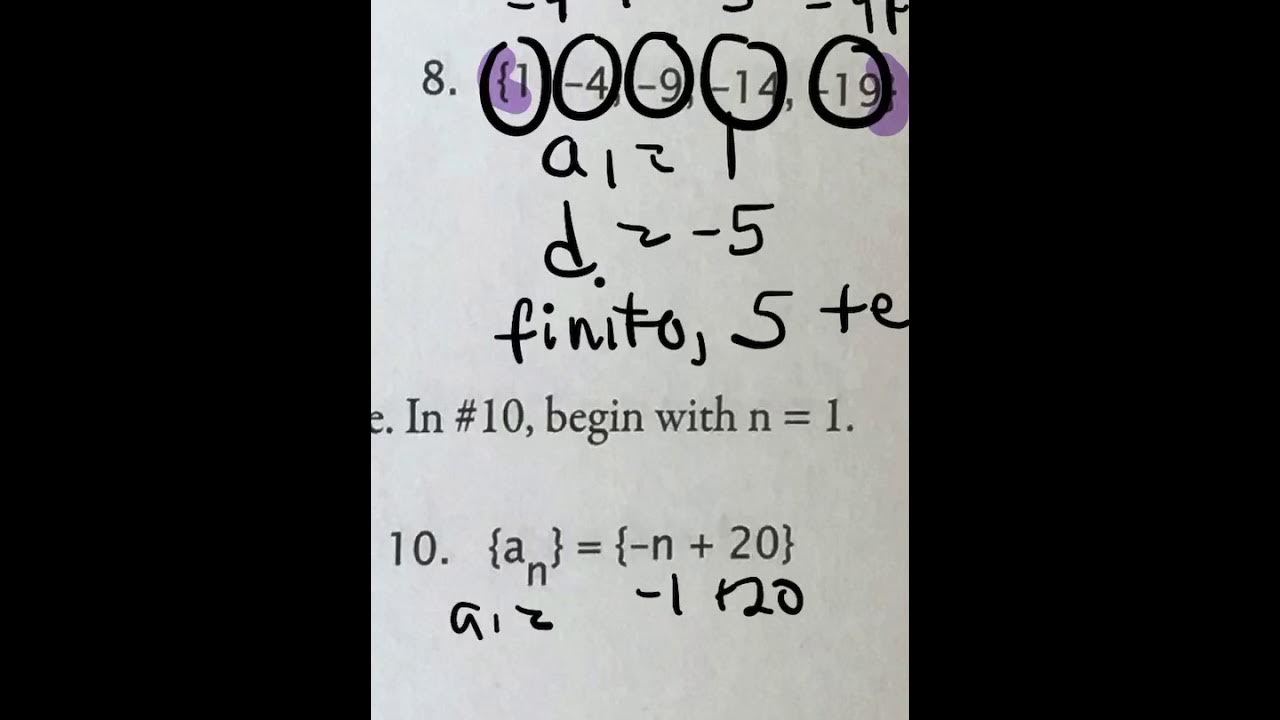 8. {1, -4, -9, -14, -19}
a1 = 1
d. = -5
finito, 5 te
e. In #10, begin with n = 1.
10. {an} = {-n + 20}
a1 = -1 +20